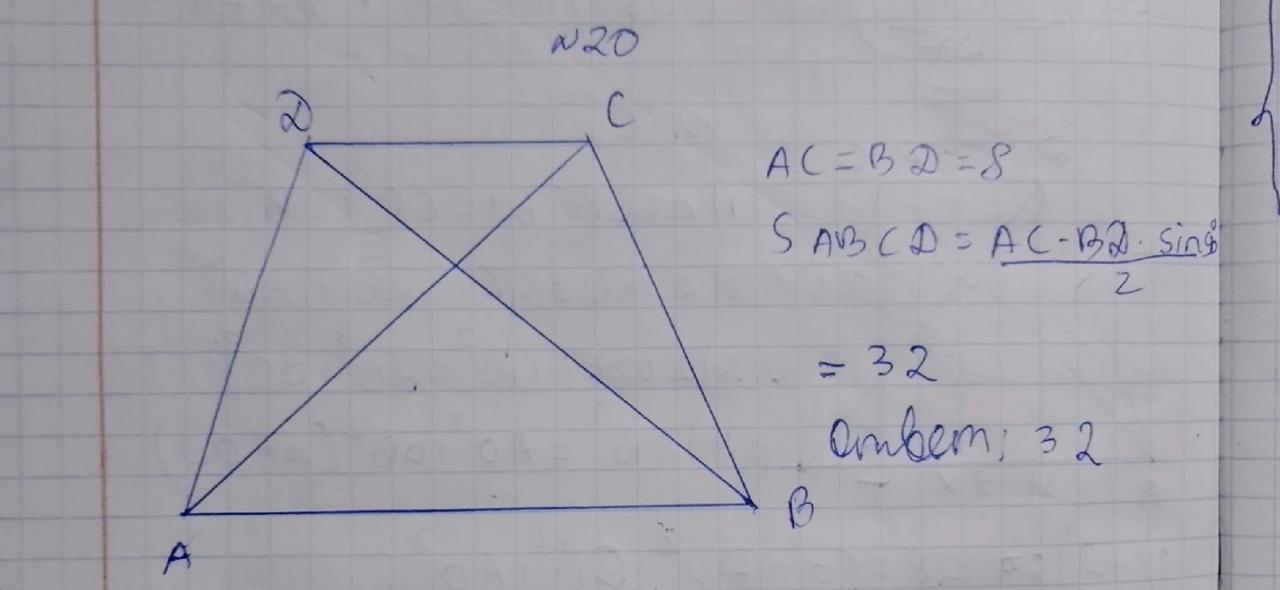 №20
D C
AC = BD = 8
S ABCD = AC · BD · sin
2
= 32
Ответ: 32
A B